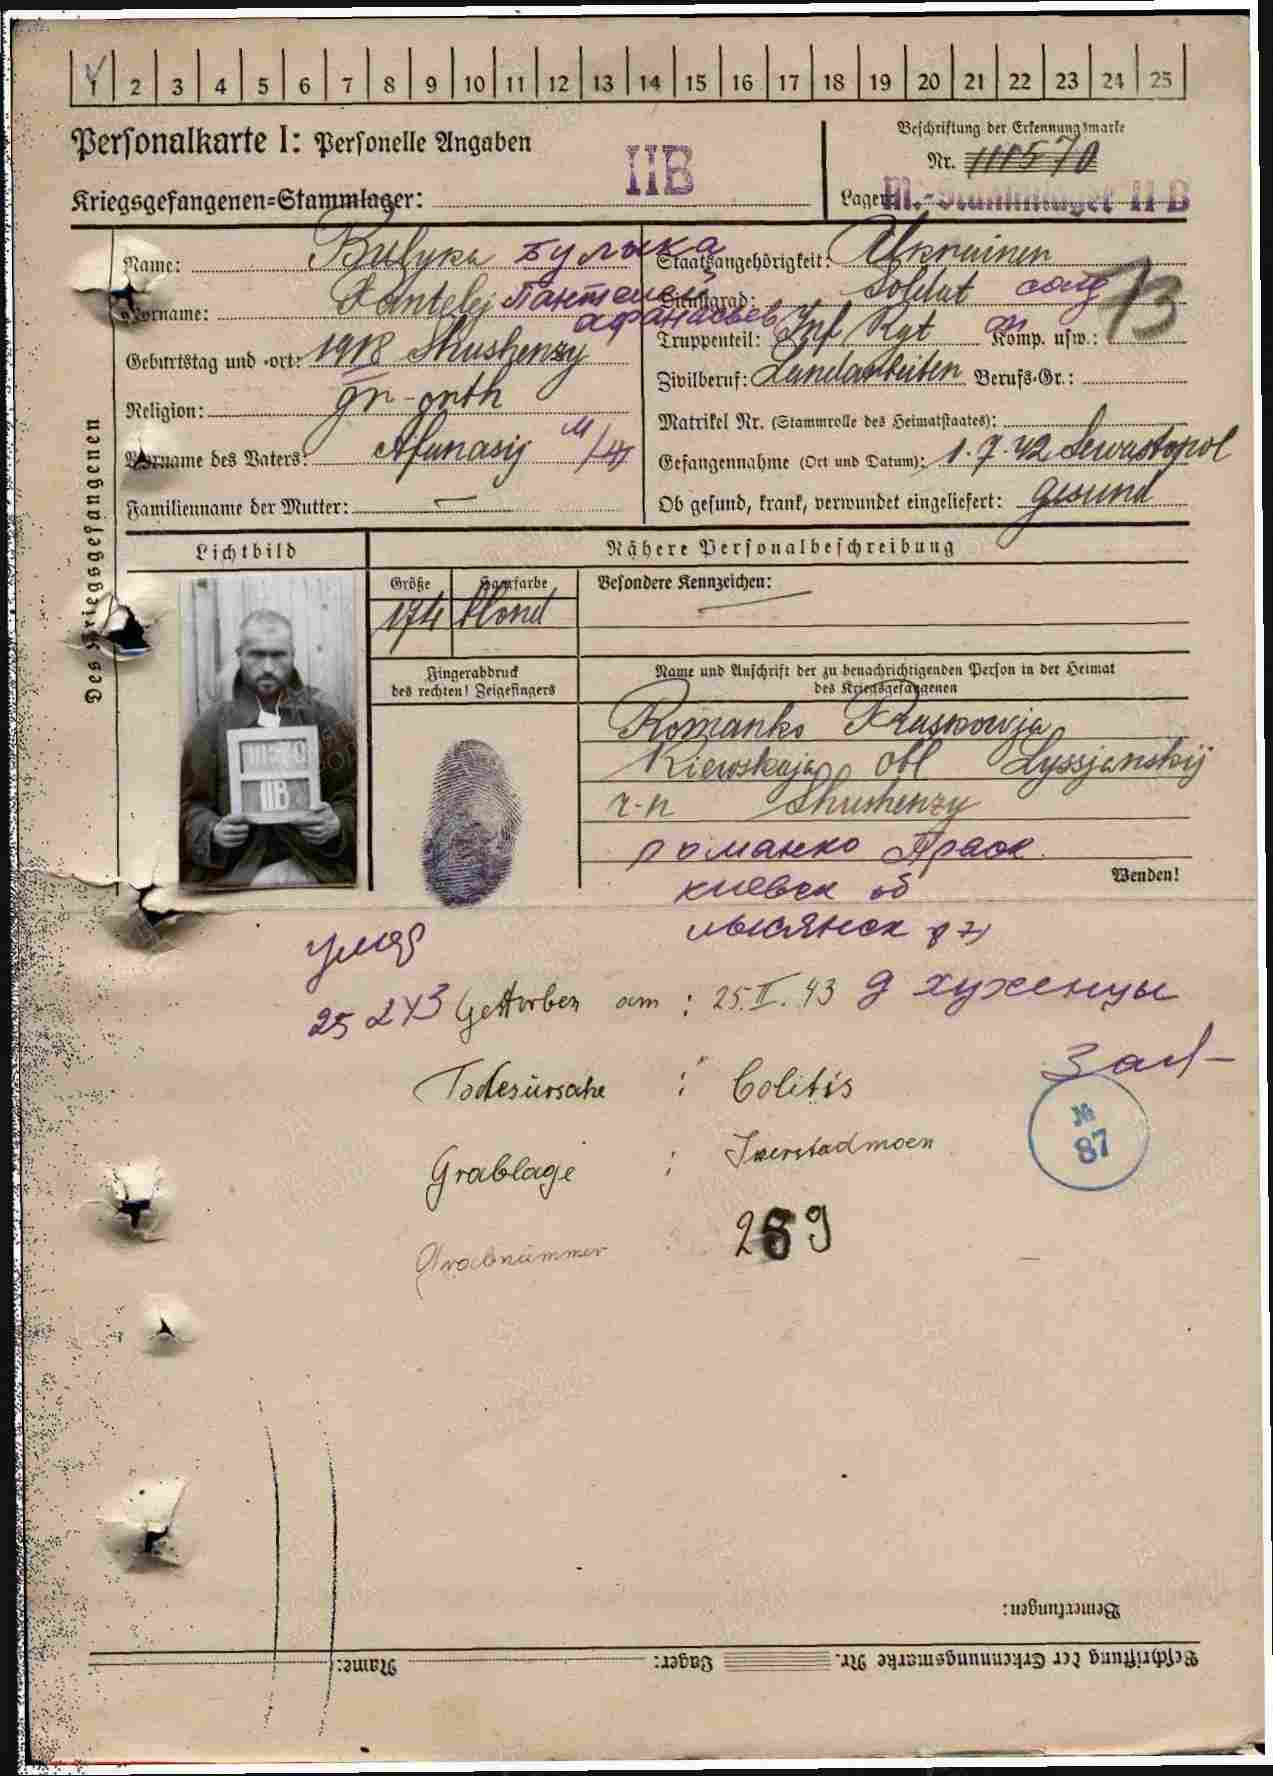 1 2 3 4 5 6 7 8 9 10 11 12 13 14 15 16 17 18 19 20 21 22 23 24 25
Personalkarte I: Personelle Angaben
Beschriftung der Erkennungsmarke
Nr. 111570
Kriegsgefangenen-Stammlager: II B
Lager: M.-Stammlager II B
Des Kriegsgefangenen
Name: Bulyka Булыка
Staatsangehörigkeit: Ukrainen
Vorname: Pantelej Пантелей
Dienstgrad: Soldat солд
13
Афанасьев
Truppenteil: Inf Rgt Komp. usw.:
Geburtstag und -ort: 1918 Shushenzy
Zivilberuf: Landarbeiten Berufs-Gr.:
Religion: gr-orth
Matrikel Nr. (Stammrolle des Heimatstaates):
Vorname des Vaters: Afanasij
Gefangennahme (Ort und Datum): 1.7.42 Sewastopol
Familienname der Mutter: —
Ob gesund, krank, verwundet eingeliefert: gesund
Lichtbild
Nähere Personalbeschreibung
Größe Haarfarbe
Besondere Kennzeichen:
174 blond
Fingerabdruck
des rechten! Zeigefingers
Name und Anschrift der zu benachrichtigenden Person in der Heimat
des Kriegsgefangenen
Romanko Praskowja
Kiewskaja obl Lyssjanskij
r-n Shushenzy
II B
Романко Праск
Киевск об
Wenden!
Лысянск р
умер
25 2 43 Gestorben am : 25.II.43 д Хуженцы
Todesursache : Colitis
№
87
Grablage :
Grabnummer : 289
Bemerkungen:
Beschriftung der Erkennungsmarke Nr. Lager: Name: